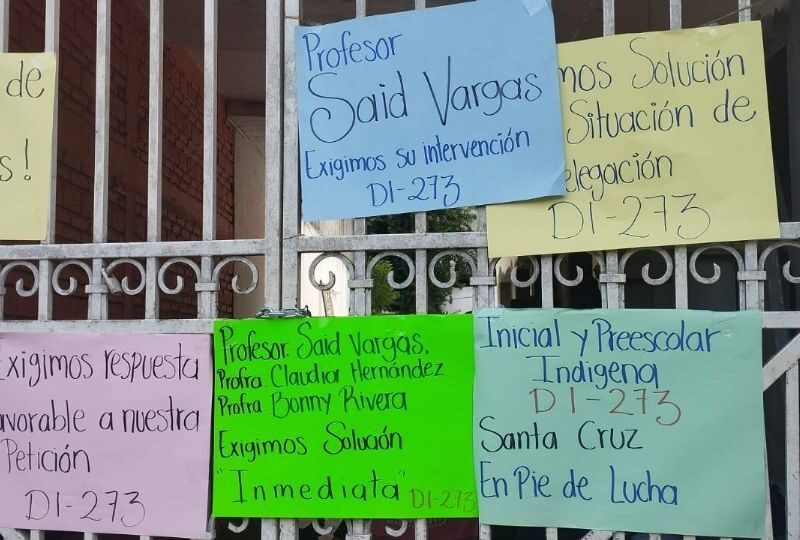 de
s!
Profesor
Said Vargas
Exigimos su intervención
DI-273
mos Solución
Situación de
elegación
DI-273
xigimos respuesta
avorable a nuestra
Petición
DI-273
Profesor. Said Vargas.
Profra. Claudia Hernández
Profra Bonny Rivera
Exigimos Solución
"Inmediata" DI-273
Inicial y Preescolar
Indigena
DI-273
Santa Cruz
En Pie de Lucha